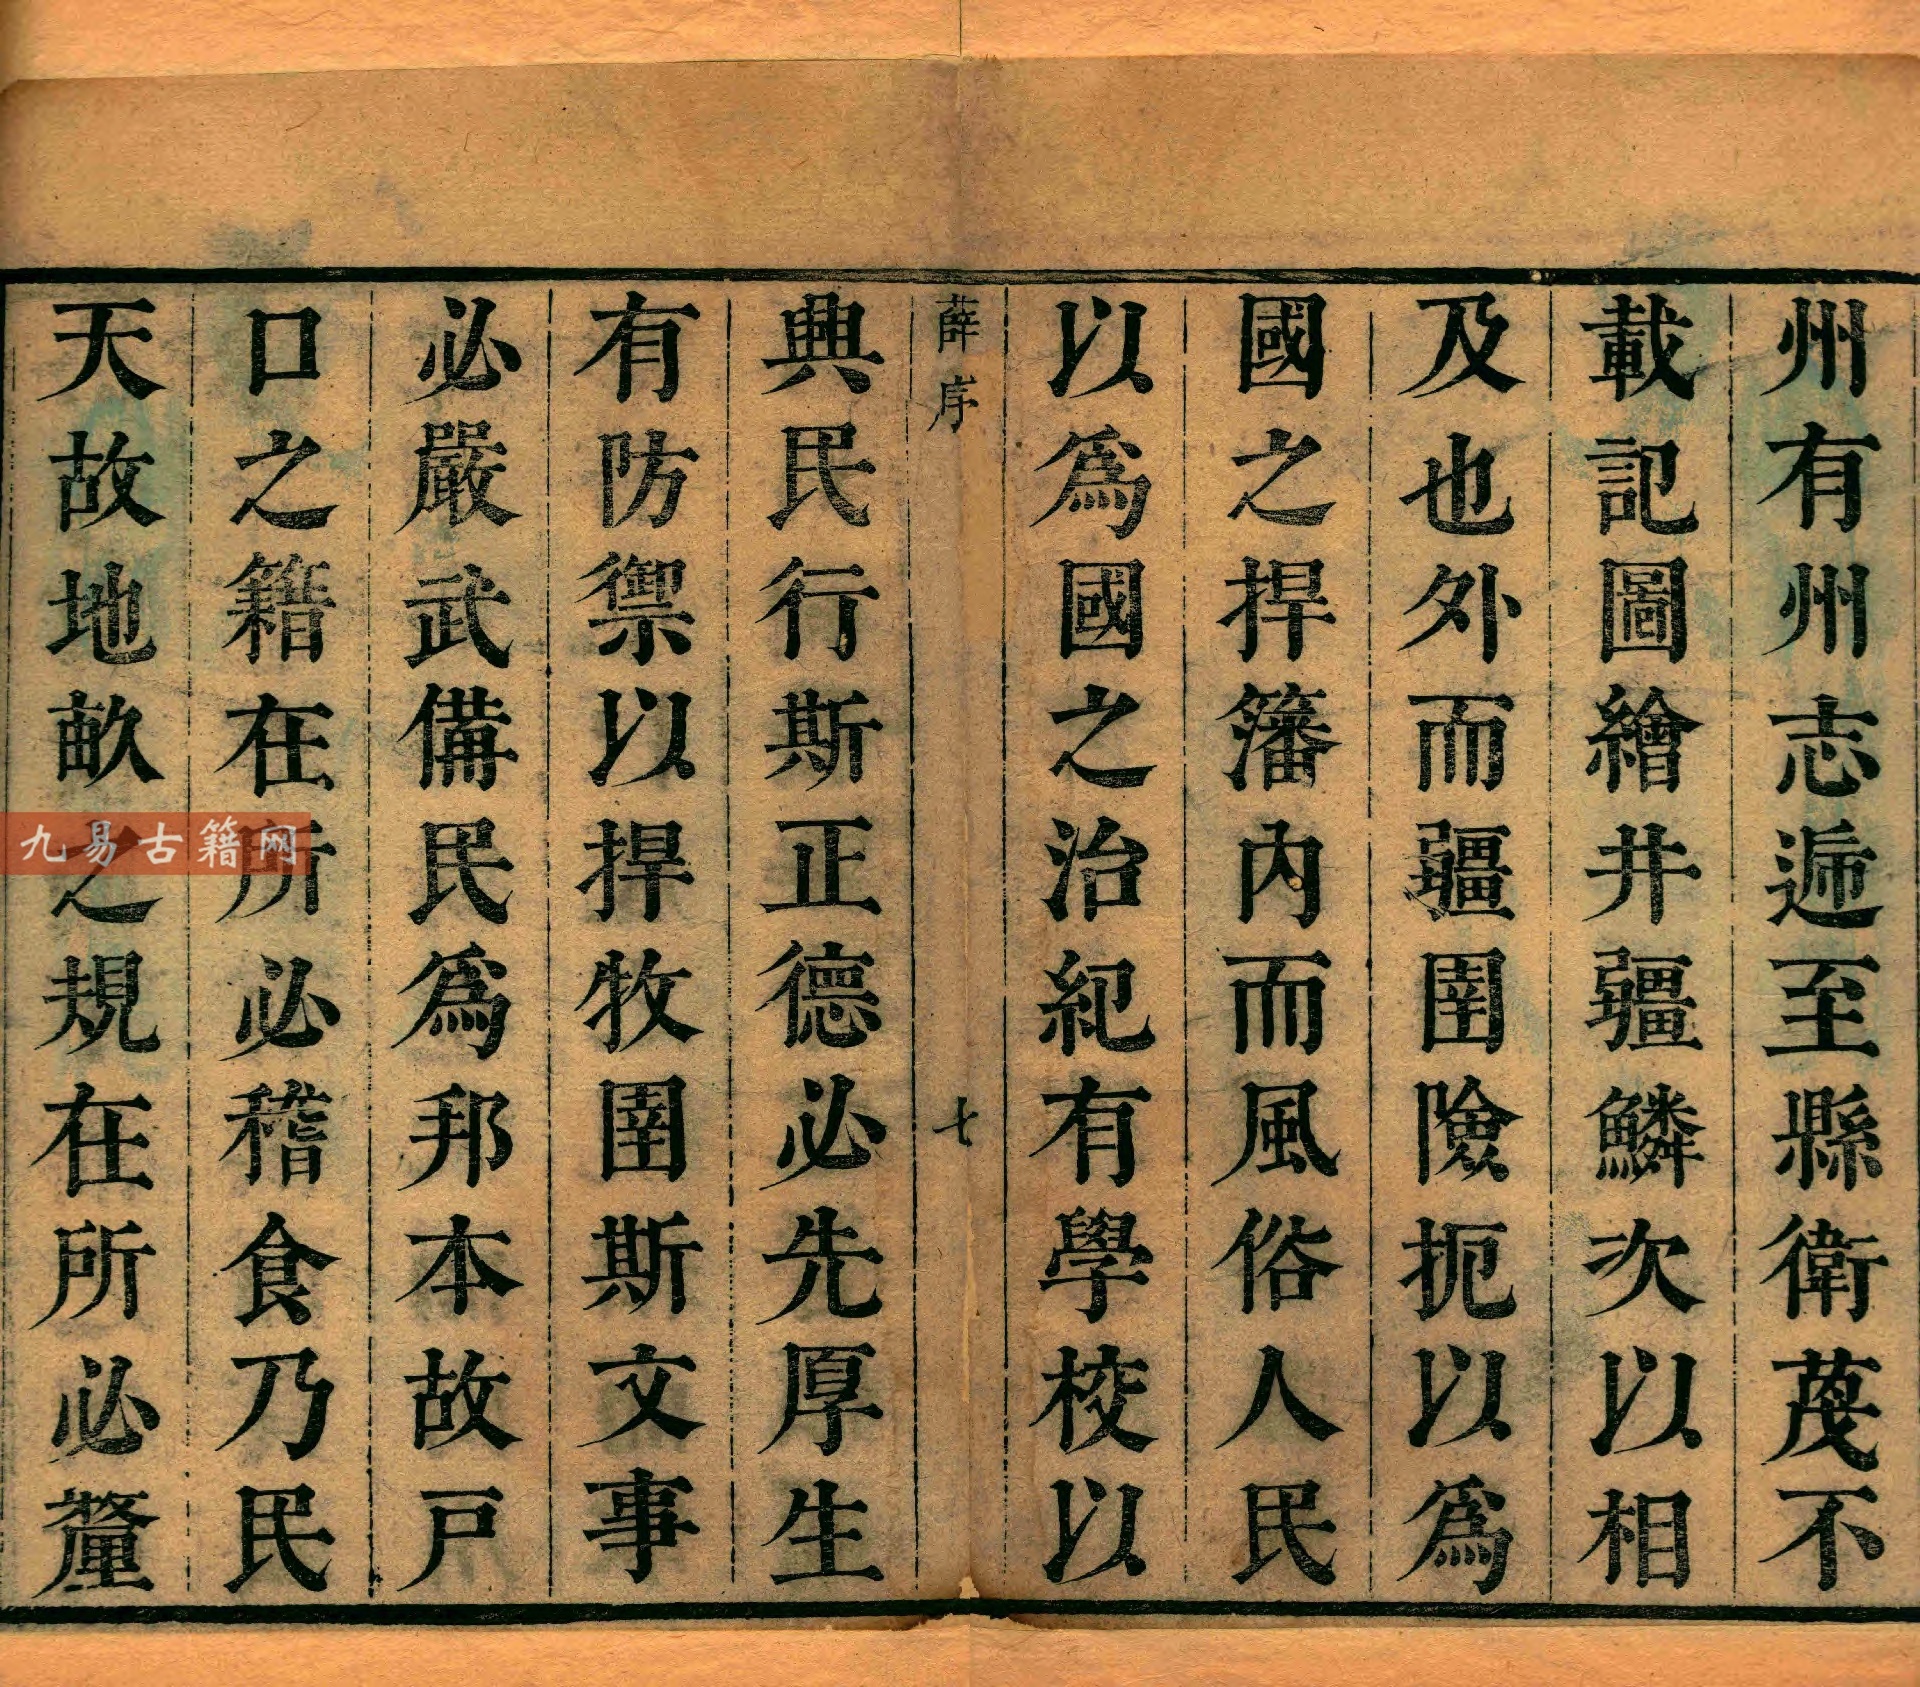 州有州志遞至縣衛蔑不
載記圖繪井疆鱗次以相
及也外而疆圉險扼以為
國之捍籓內而風俗人民
以為國之治紀有學校以
薛序
七
典民行斯正德必先厚生
有防禦以捍牧圉斯文事
必嚴武備民為邦本故戸
口之籍在所必稽食乃民
天故地畝之規在所必釐
九易古籍网